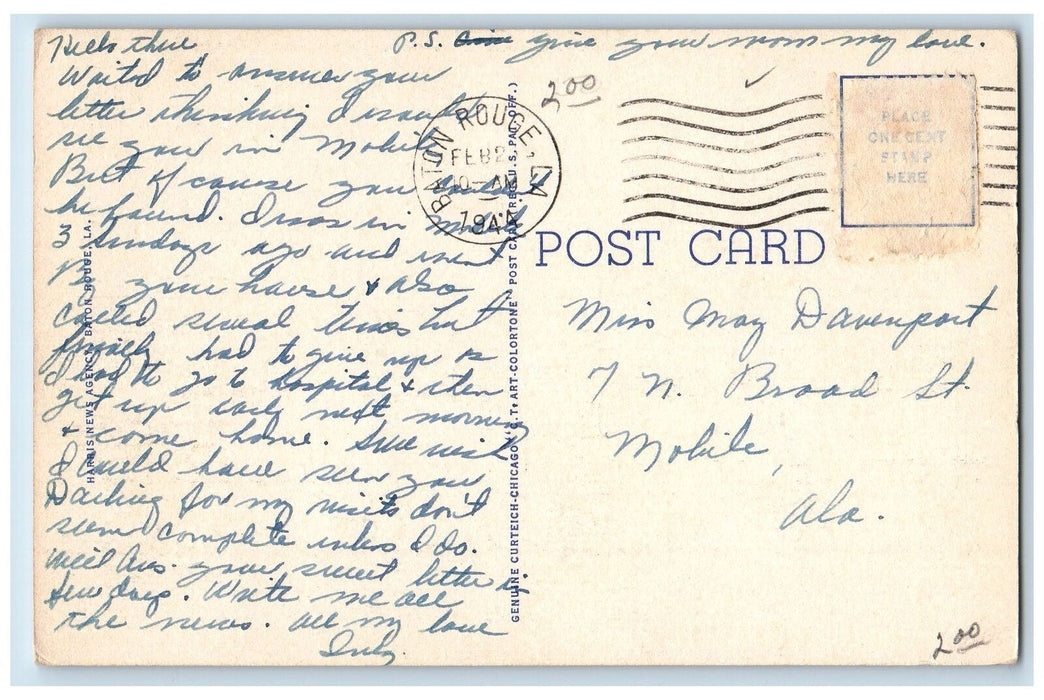 Hello there
P.S. give your mom my love.
Waited to answer your
letter thinking I would
see you in Mobile
But of course you could
be found. I was in Mobile
3 Sundays ago and went
By your house & also
called several times but
finally had to give up as
I had to go to hospital & then
get up early next morning
& come home. Sure wish
I could have seen you
Darling for my visits don't
seem complete unless I do.
Will Ans. your sweet letter in
few days. Write me all
the news. All my love
2.00
BATON ROUGE, LA.
FEB 2
10 - AM
1944
PLACE
ONE CENT
STAMP
HERE
POST CARD
Miss May Davenport
7 N. Broad St.
Mobile,
Ala.
2.00
HARRIS NEWS AGENCY, BATON ROUGE, LA.
GENUINE CURTEICH-CHICAGO "C.T. ART-COLORTONE" POST CARD (REG. U.S. PAT. OFF.)